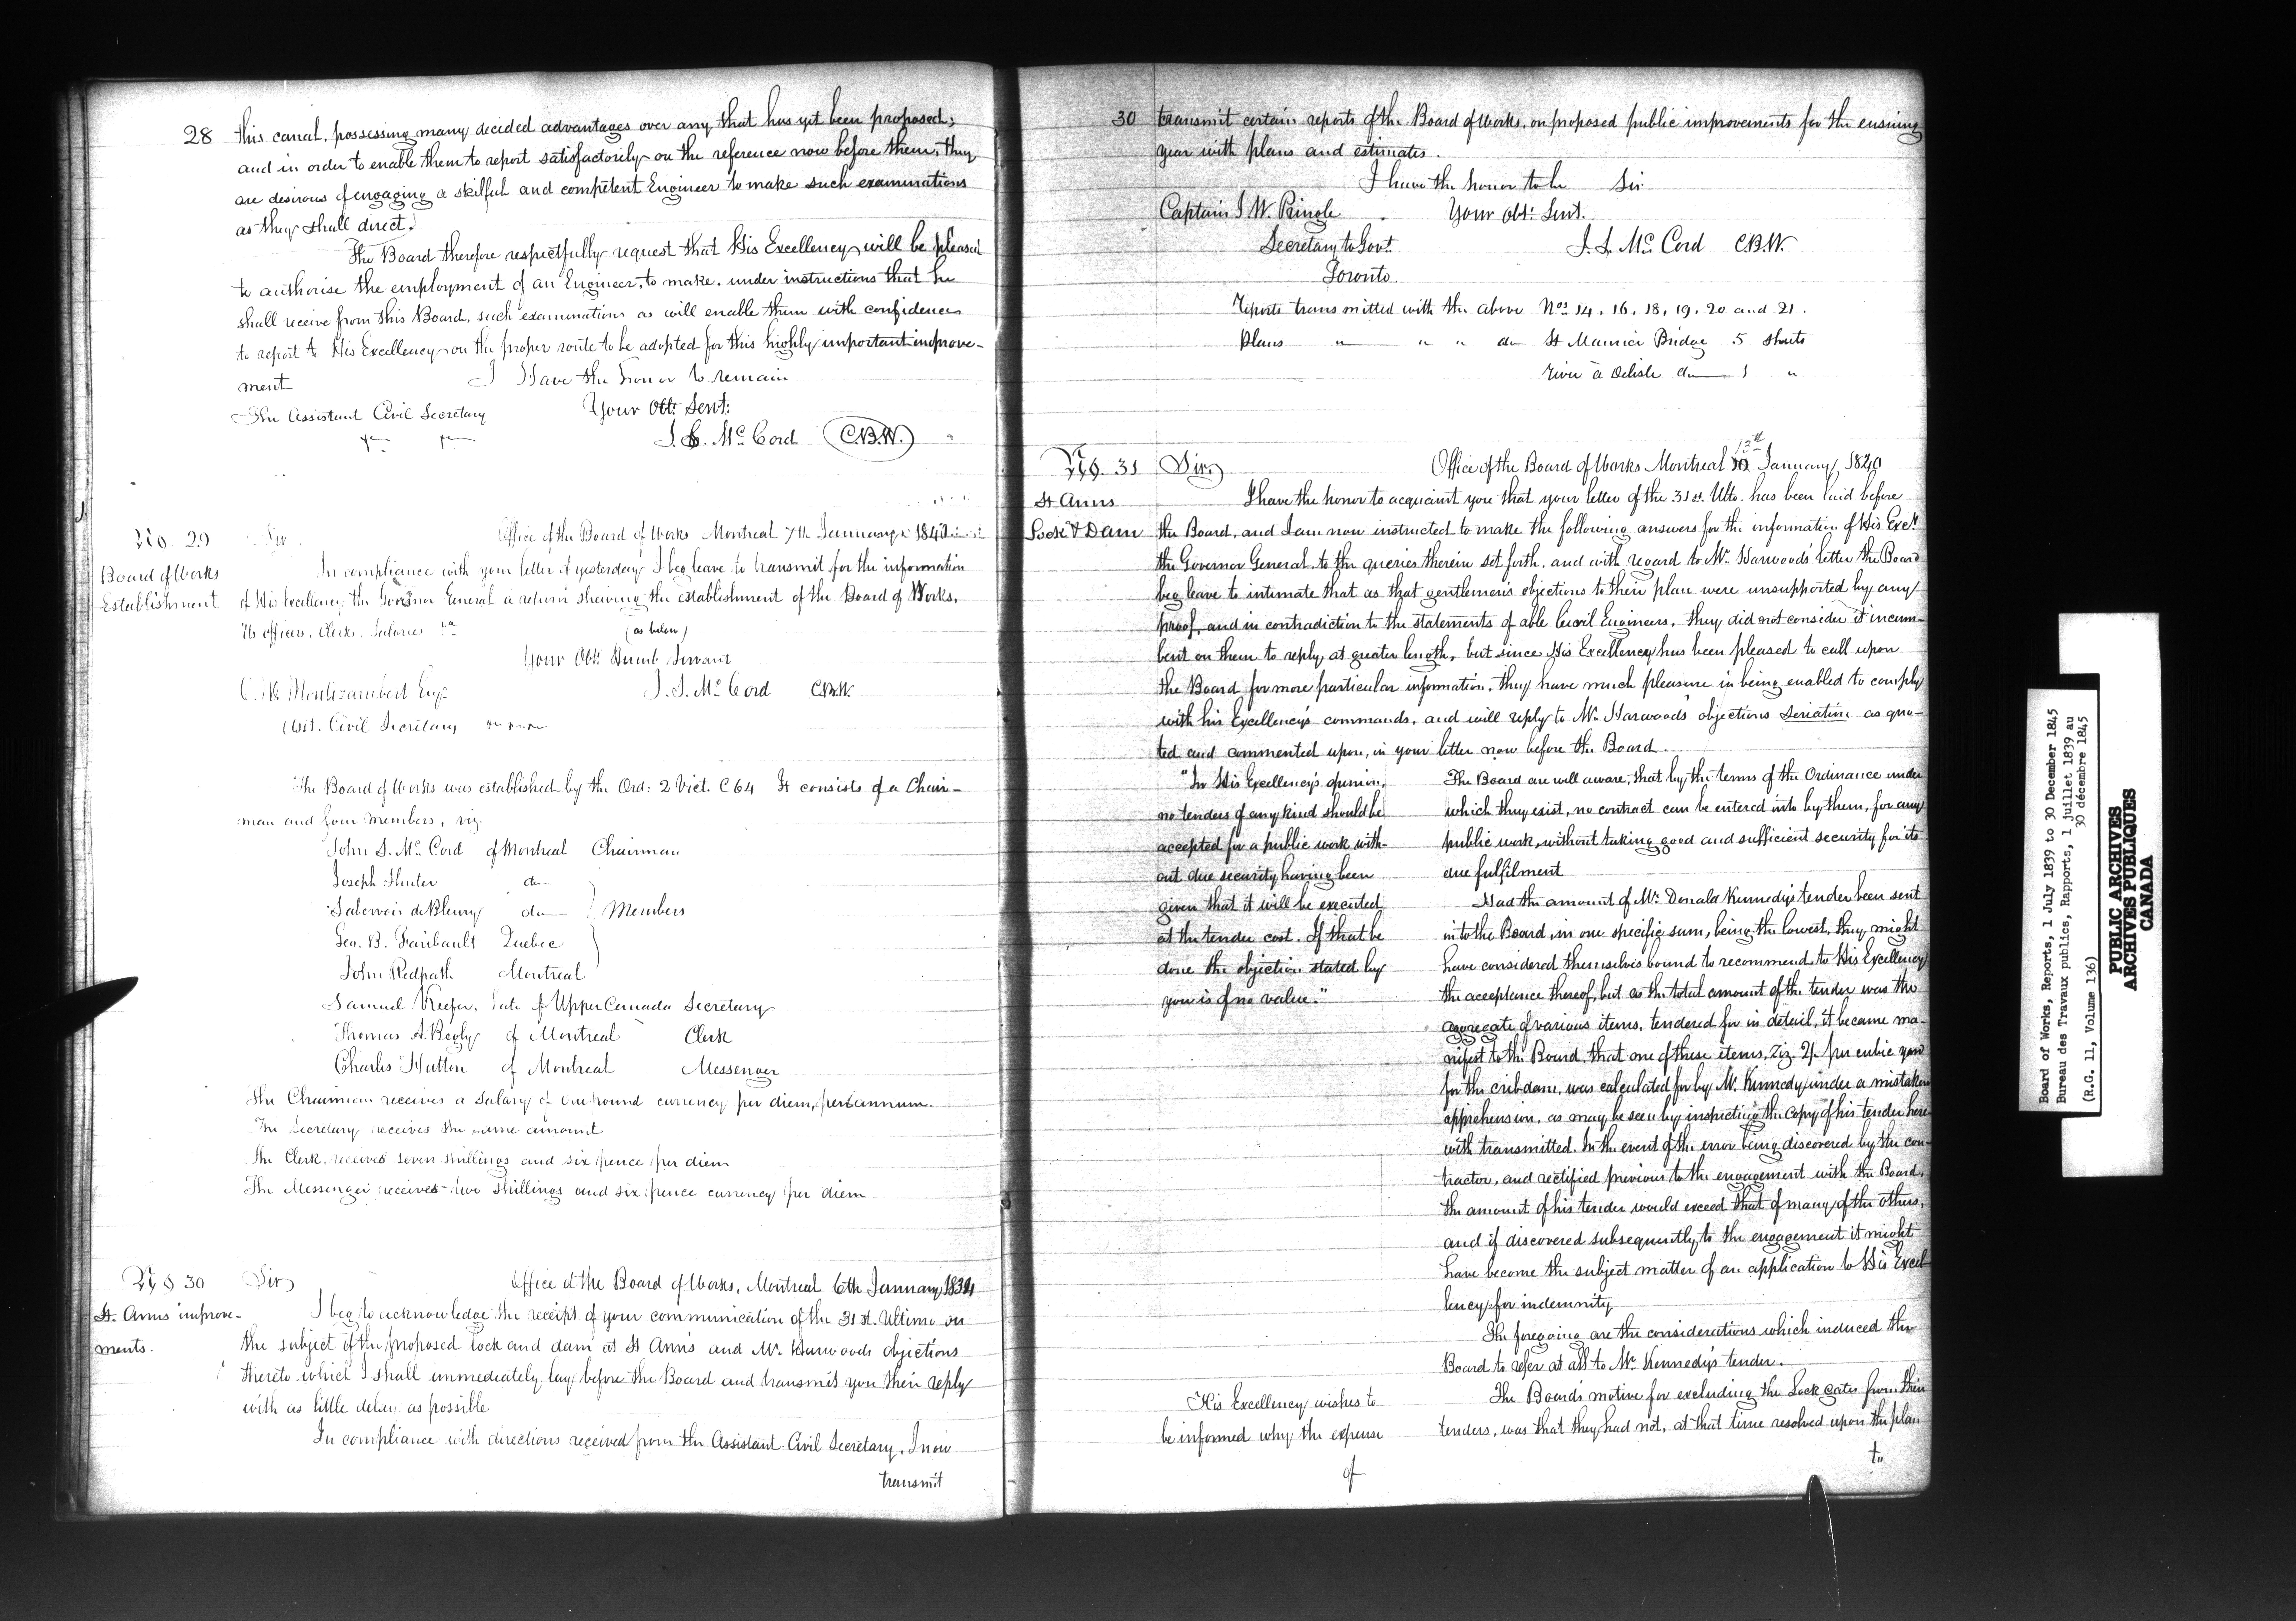 28 this canal, possessing many decided advantages over any that has yet been proposed;
and in order to enable them to report satisfactorily on the reference now before them, they
are desirous of engaging a skilful and competent Engineer to make such examinations
as they shall direct.
The Board therefore respectfully request that His Excellency will be pleased
to authorise the employment of an Engineer, to make, under instructions that he
shall receive from this Board, such examinations as will enable them with confidence
to report to His Excellency on the proper route to be adopted for this highly important improve-
ment I Have the honor to remain
The Assistant Civil Secretary Your Obt: Sert:
J. S. Mc Cord C.B.W.
No. 29 Sir Office of the Board of Works Montreal 7th January 1840
Board of Works
Establishment
In compliance with your letter of yesterday I beg leave to transmit for the information
of His Excellency the Governor General a return shewing the establishment of the Board of Works,
its officers, Clerks, Salaries &a (as below)
Your Obt: Humb. Servant
J. S. Mc Cord C.B.W.
Esqr
Asst. Civil Secretary
The Board of Works was established by the Ord: 2 Vict. C 64 It consists of a Chair-
man and four members, viz.
John S. Mc Cord of Montreal Chairman
Joseph Shuter do
Sabervois de Bleury do Members
Geo. B. Faribault Quebec
John Redpath Montreal
Samuel Keefer, late of Upper Canada Secretary
Thomas A. Begly of Montreal Clerk
Charles Hutton of Montreal Messenger
The Chairman receives a Salary of one pound currency per diem, per annum.
The Secretary receives the same amount
The Clerk, receives seven shillings and six pence per diem
The Messenger receives two shillings and six pence currency per diem
No 30 Sir Office of the Board of Works, Montreal 6th January
St. Anns improve-
ments.
I beg to acknowledge the receipt of your communication of the 31st. Ultimo on
the subject of the proposed lock and dam at St Anns and Mr Harwoods objections
thereto which I shall immediately lay before the Board and transmit you their reply
with as little delay as possible
In compliance with directions received from the Assistant Civil Secretary, I now
transmit
30 transmit certain reports of the Board of Works, on proposed public improvements for the ensuing
year with plans and estimates.
I have the honor to be Sir
Captain J W. Pringle Your Obt: Sert.
Secretary to Govt. J. S. Mc Cord C.B.W.
Toronto
Reports transmitted with the above Nos 14, 16, 18, 19, 20 and 21.
Plans " " " do St Maurice Bridge 5 sheets
River à Delisle do 1 "
No. 31 Sir Office of the Board of Works Montreal 13th January 1840
St Anns
Lock & Dam
I have the honor to acquaint you that your letter of the 31st. Ulto. has been laid before
the Board, and I am now instructed to make the following answers for the information of His Excy
the Governor General, to the queries therein set forth, and with regard to Mr Harwoods' letter the Board
beg leave to intimate that as that gentlemen's objections to their plan were unsupported by any
proof, and in contradiction to the statements of able Civil Engineers, they did not consider it incum-
bent on them to reply at greater length, but since His Excellency has been pleased to call upon
the Board for more particular information, they have much pleasure in being enabled to comply
with his Excellency's commands, and will reply to Mr Harwoods' objections Seriatim as quo-
ted and commented upon, in your letter now before the Board.
"In His Excellency's opinion,
no tenders of any kind should be
accepted for a public work with-
out due security having been
given that it will be executed
at the tender cost. If that be
done the objection stated by
you is of no value."
The Board are well aware, that by the terms of the Ordinance under
which they exist, no contract can be entered into by them, for any
public work, without taking good and sufficient security for its
due fulfilment
Had the amount of Mr Donald Kennedy's tender been sent
in to the Board, in one specific sum, being the lowest, they might
have considered themselves bound to recommend to His Excellency
the acceptance thereof, but as the total amount of the tender was the
aggregate of various items, tendered for in detail, it became ma-
nifest to the Board, that one of these items, viz. 2/. per cubic yard
for the crib dam, was calculated for by Mr. Kennedy under a mistaken
apprehension, as may be seen by inspecting the Copy of his tender here-
with transmitted. In the event of the error being discovered by the con-
tractor, and rectified previous to the engagement with the Board,
the amount of his tender would exceed that of many of the others,
and if discovered subsequently to the engagement it might
have become the subject matter of an application to His Excel-
lency for indemnity
The foregoing are the considerations which induced the
Board to refer at all to Mr Kennedy's tender.
His Excellency wishes to
be informed why the expense
of
The Board's motive for excluding the Lock gates from their
tenders, was that they had not, at that time resolved upon the plan
to
Board of Works, Reports, 1 July 1839 to 30 December 1845
Bureau des Travaux publics, Rapports, 1 juillet 1839 au
30 décembre 1845
(R.G. 11, Volume 136)
PUBLIC ARCHIVES
ARCHIVES PUBLIQUES
CANADA